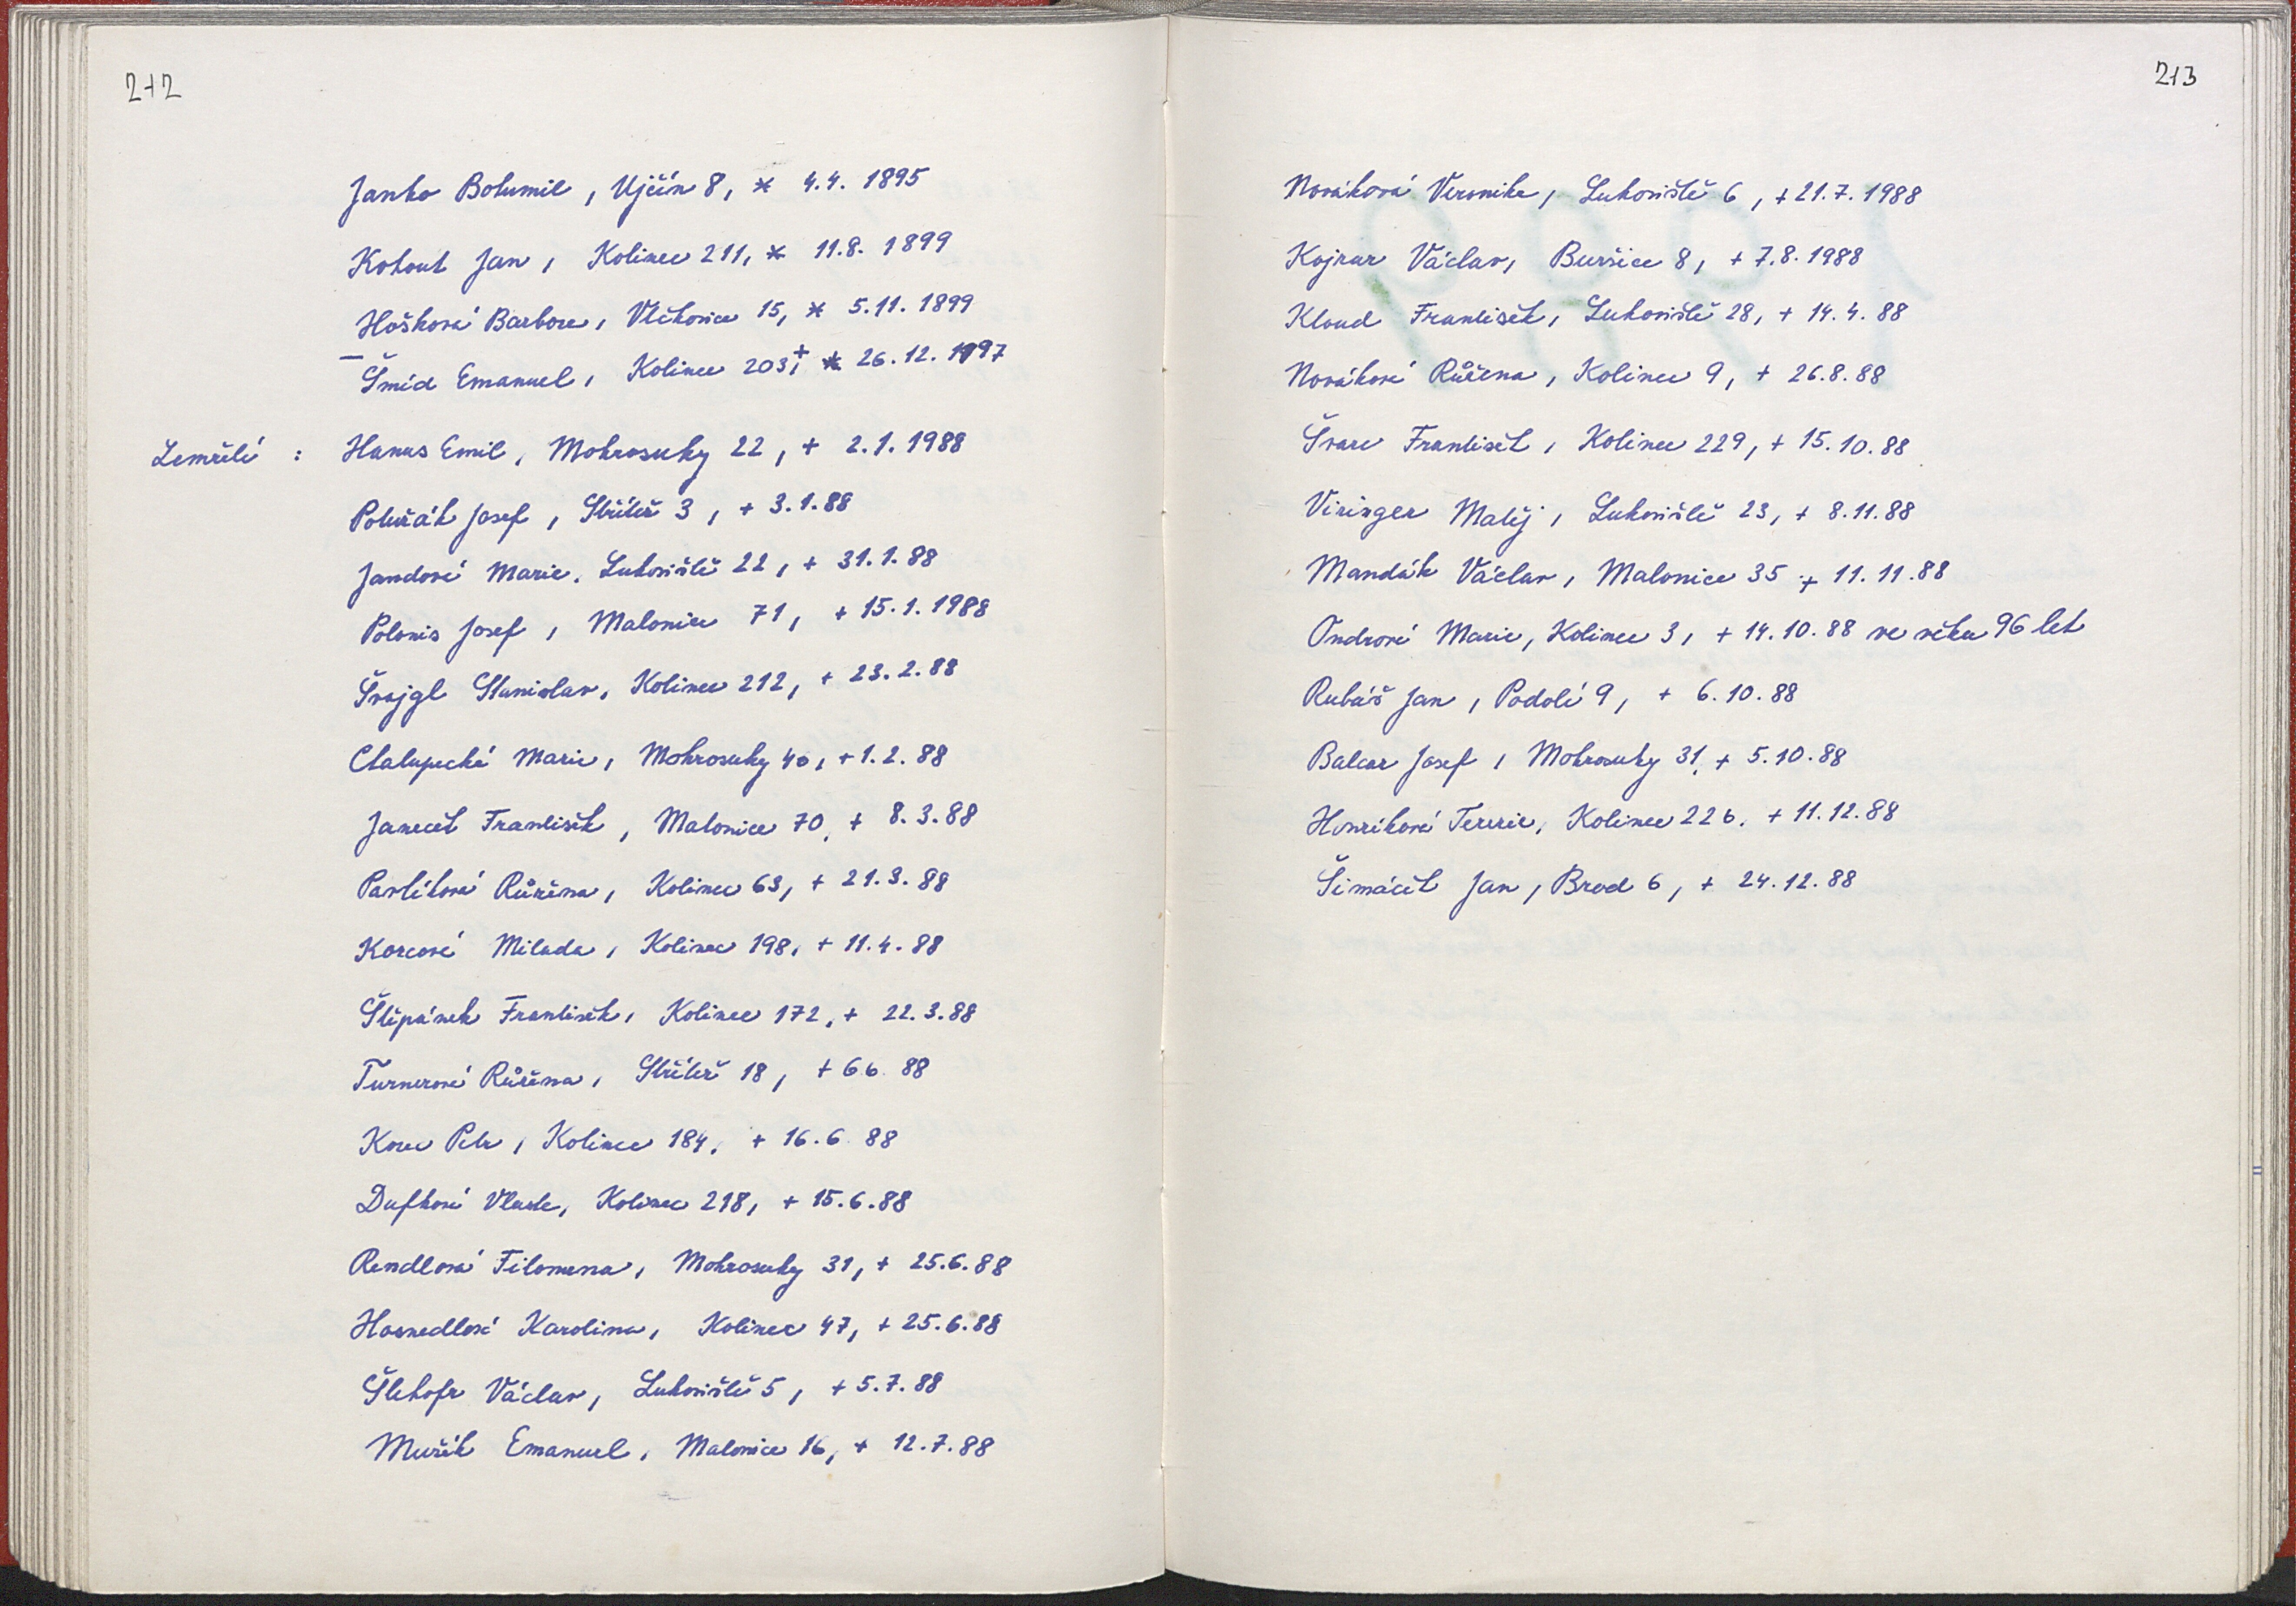 212
Janko Bohumil, Ujčín 8, * 4.4. 1895
Kohout Jan, Kolinec 211, * 11.8. 1899
Hošková Barbora, Vlčkovice 15, * 5.11. 1899
Šmíd Emanuel, Kolinec 203, + * 26.12. 1997
Zemřelí : Hanus Emil, Mokrosuky 22, + 2.1.1988
Poluřák Josef, Střítěž 3, + 3.1.88
Jandová Marie, Lukoviště 22, + 31.1.88
Polonis Josef, Malonice 71, + 15.1.1988
Švajgl Stanislav, Kolinec 212, + 23.2.88
Chalupecká Marie, Mokrosuky 40, + 1.2.88
Janeček František, Malonice 70, + 8.3.88
Pavlíková Růžena, Kolinec 63, + 21.3.88
Korcová Milada, Kolinec 198, + 11.4.88
Štěpánek František, Kolinec 172, + 22.3.88
Turnerová Růžena, Střítěž 18, + 6.6.88
Korec Petr, Kolinec 184, + 16.6.88
Dufková Vlasta, Kolinec 218, + 15.6.88
Rendlová Filomena, Mokrosuky 31, + 25.6.88
Hosnedlová Karolina, Kolinec 47, + 25.6.88
Šlehofr Václav, Lukoviště 5, + 5.7.88
Mužík Emanuel, Malonice 16, + 12.7.88
213
Nováková Veronika, Lukoviště 6, + 21.7.1988
Kojzar Václav, Buršice 8, + 7.8.1988
Kloud František, Lukoviště 28, + 14.4.88
Nováková Růžena, Kolinec 9, + 26.8.88
Švarc František, Kolinec 229, + 15.10.88
Viringer Matěj, Lukoviště 23, + 8.11.88
Mandák Václav, Malonice 35 + 11.11.88
Ondrová Marie, Kolinec 3, + 14.10.88 ve věku 96 let
Rubáš Jan, Podolí 9, + 6.10.88
Balcar Josef, Mokrosuky 31, + 5.10.88
Honzíková Terezie, Kolinec 226, + 11.12.88
Šimáček Jan, Brod 6, + 24.12.88